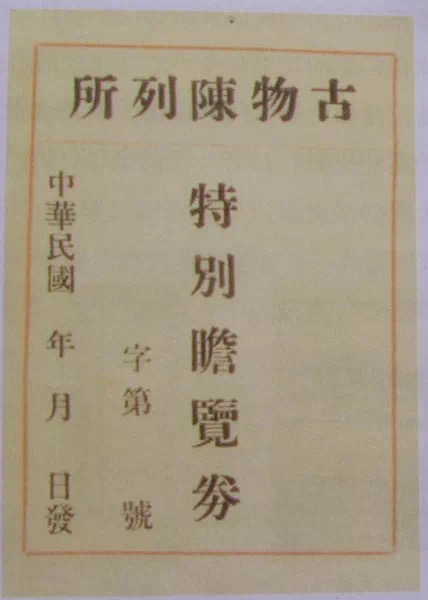 古物陳列所
特別瞻覽券
字第 號
中華民國 年 月 日發